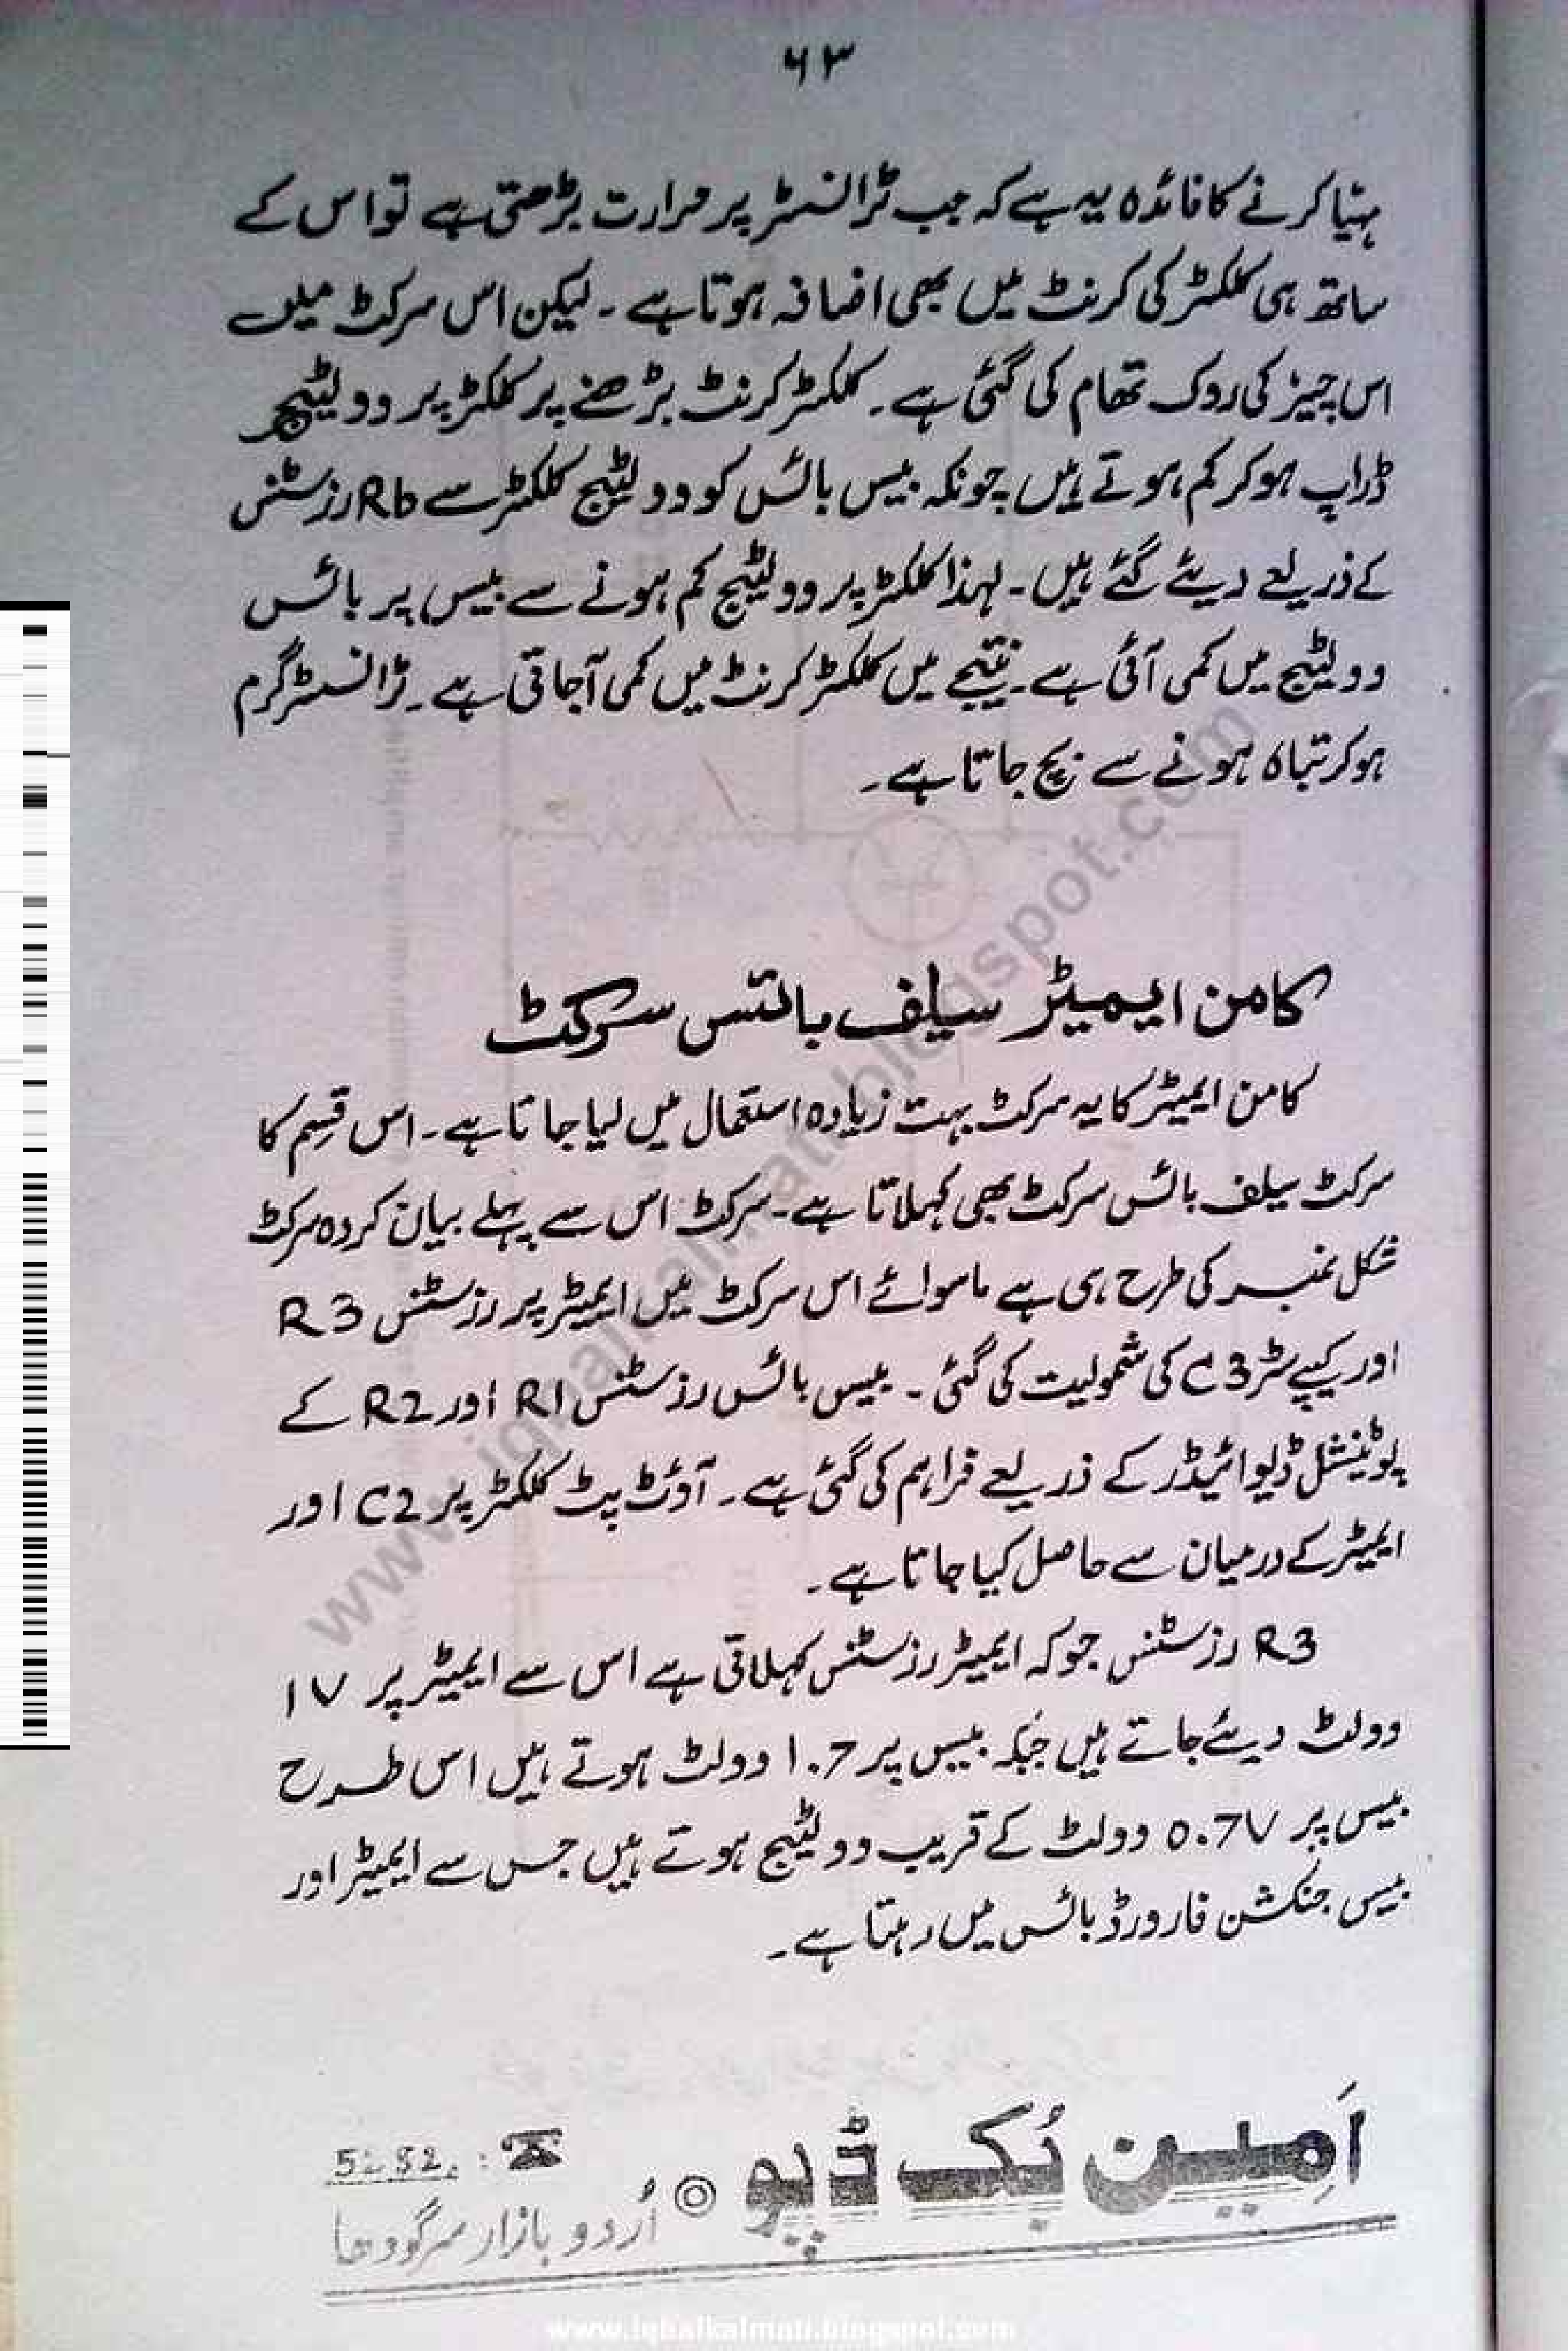 ۶۳
مہیا کرنے کا فائدہ یہ ہے کہ جب ٹرانسسٹر پر حرارت بڑھتی ہے تو اس کے
ساتھ ہی کلکٹر کی کرنٹ میں بھی اضافہ ہوتا ہے ۔ لیکن اس سرکٹ میں
اس چیز کی روک تھام کی گئی ہے ۔ کلکٹر کرنٹ بڑھنے پر کلکٹر پر وولٹیج
ڈراپ ہو کر کم ہوتے ہیں چونکہ بیس بائس کو وولٹیج کلکٹر سے Rb رزسٹنس
کے ذریعے دیئے گئے ہیں ۔ لہذا کلکٹر پر وولٹیج کم ہونے سے بیس پر بائس
وولٹیج میں کمی آئی ہے ۔ نتیجے میں کلکٹر کرنٹ میں کمی آجاتی ہے ۔ ٹرانسسٹر گرم
ہو کر تباہ ہونے سے بچ جاتا ہے ۔
کامن ایمیٹر سیلف بائس سرکٹ
کامن ایمیٹر کا یہ سرکٹ بہت زیادہ استعمال میں لیا جاتا ہے ۔ اس قسم کا
سرکٹ سیلف بائس سرکٹ بھی کہلاتا ہے ۔ سرکٹ اس سے پہلے بیان کردہ سرکٹ
شکل نمبر کی طرح ہی ہے ماسوائے اس سرکٹ میں ایمیٹر پر رزسٹنس R3
اور کیپے سٹر C3 کی شمولیت کی گئی ۔ بیس بائس رزسٹنس R1 اور R2 کے
پوٹینشل ڈیوائیڈر کے ذریعے فراہم کی گئی ہے ۔ آؤٹ پٹ کلکٹر پر C2 اور
ایمیٹر کے درمیان سے حاصل کیا جاتا ہے ۔
R3 رزسٹنس جو کہ ایمیٹر رزسٹنس کہلاتی ہے اس سے ایمیٹر پر 1V
وولٹ دیئے جاتے ہیں جبکہ بیس پر 1.7 وولٹ ہوتے ہیں اس طرح
بیس پر 0.7V وولٹ کے قریب وولٹیج ہوتے ہیں جس سے ایمیٹر اور
بیس جنکشن فارورڈ بائس میں رہتا ہے ۔
اَمِین بُک ڈپو
اُردو بازار سرگودھا
www.iqbalkalmati.blogspot.com
www.iqbalkalmati.blogspot.com